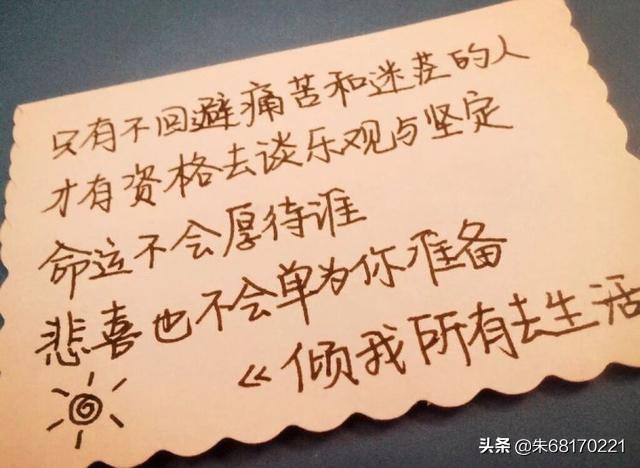 只有不回避痛苦和迷茫的人
才有资格去谈乐观与坚定
命运不会厚待谁
悲喜也不会单为你准备
《倾我所有去生活
头条 @朱68170221